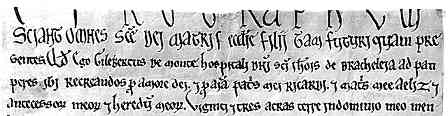 Sciant omnes sce dei matris ecclie filij tam futuri quam pre
sentes qd Ego Gilebertus de monte hospitali bti sci Johis de Bracheleia ad pau
peres ibi recreandos p amore dei, & p aīa patris mei Ricardi, & matris mee Aeliz, &
antecessor meor & heredum meor. Viginti & tres acras terre in dominio meo men